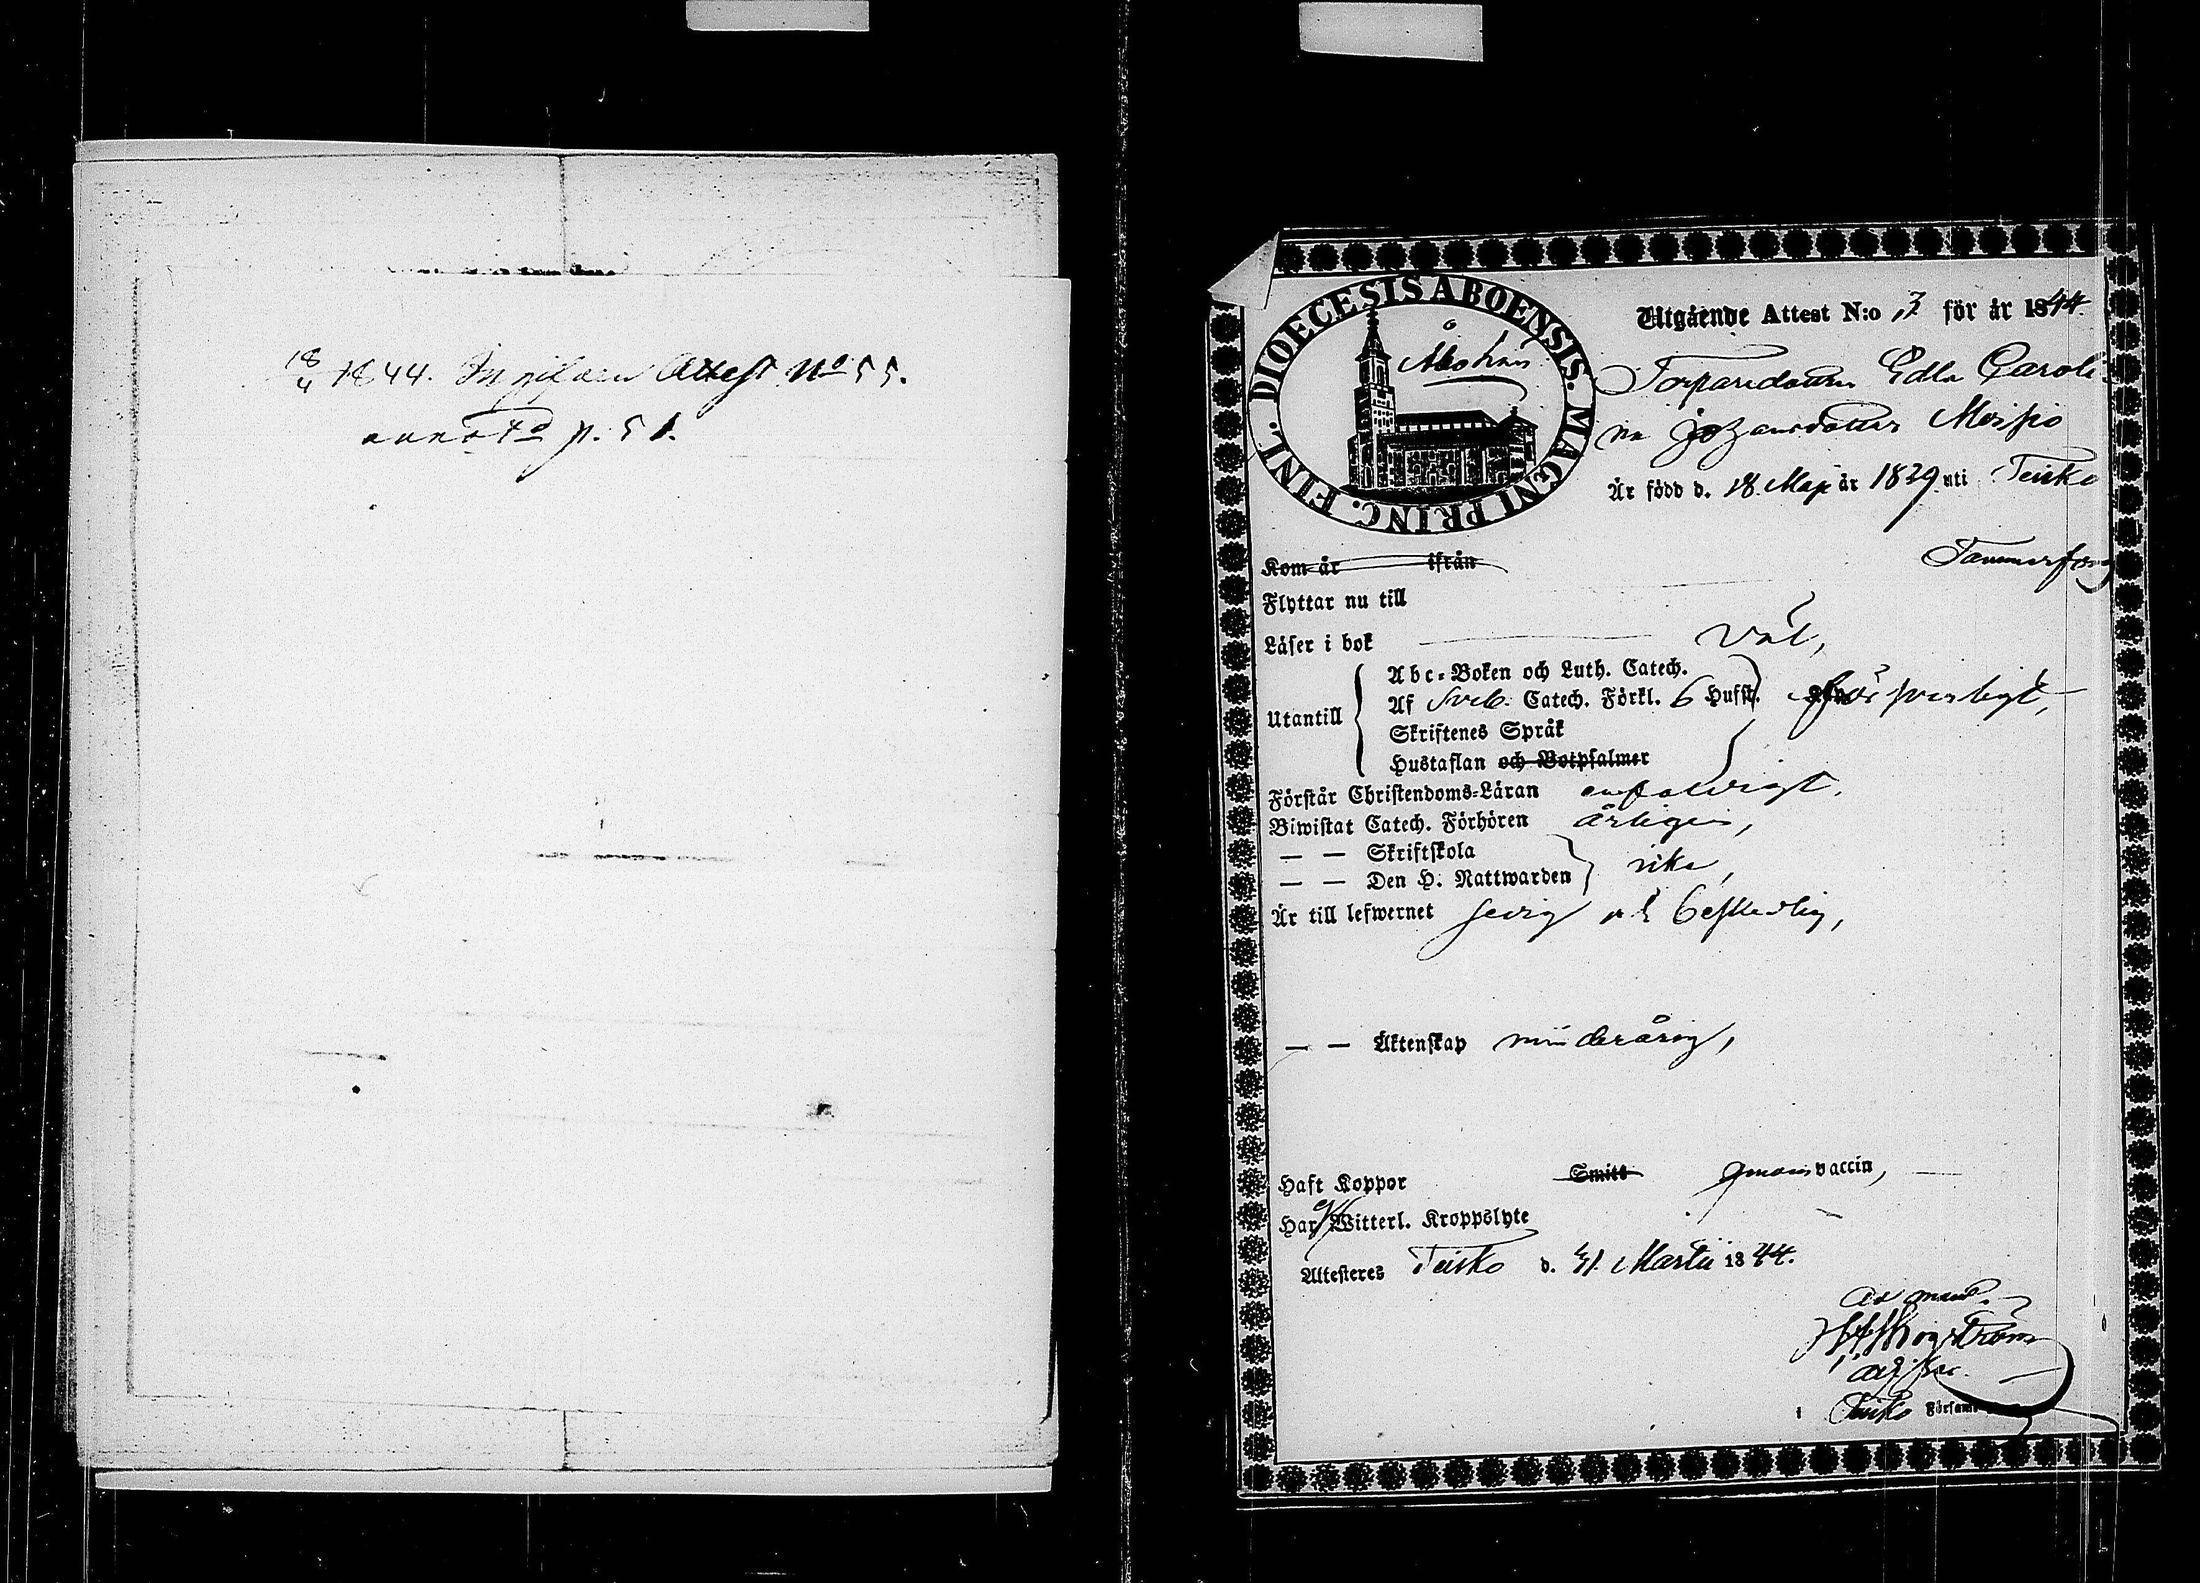 18/4 1844. Ingifven Attest No 55.
annotd p. 51.
DIOECESIS ABOENSIS. MAGNI PRINC. FINL.
Åbo hus
Utgående Attest N:o 3 för år 1844.
Torparedottren Edla Caroli-
na Johansdotter Moisio
Är född d. 18 Maji år 1829 uti Teisko
Kom år ifrån
Tammerfors
Flyttar nu till
Läser i bok väl,
Abc-Boken och Luth. Catech.
Utantill Af Sveb. Catech. Förkl. 6 Hufst. försvarligt,
Skriftenes Språk
Hustaflan och Botpsalmer
Förstår Christendoms-Läran enfaldigt,
Biwistat Catech. Förhören årligen,
— — Skriftskola
— — Den H. Nattwarden icke,
Är till lefwernet sedig och beskedlig,
— — Äktenskap minderårig,
Haft Koppor Smitt genom vaccin,
Har ej Witterl. Kroppslyte
Attesteres Teisko d. 31. Martii 1844.
Ad mand.
i Teisko Församl.